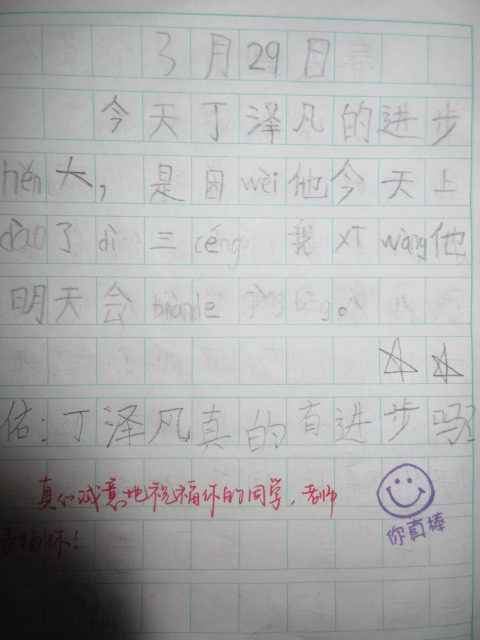 3月29日
今天丁泽凡的进步
hěn大，是因wèi他今天上
dào了dì三céng 我 wàng他
明天会biànde 。
丁泽凡真的有进步吗
真心诚意地祝福你的同学，老师
表扬你！
你真棒